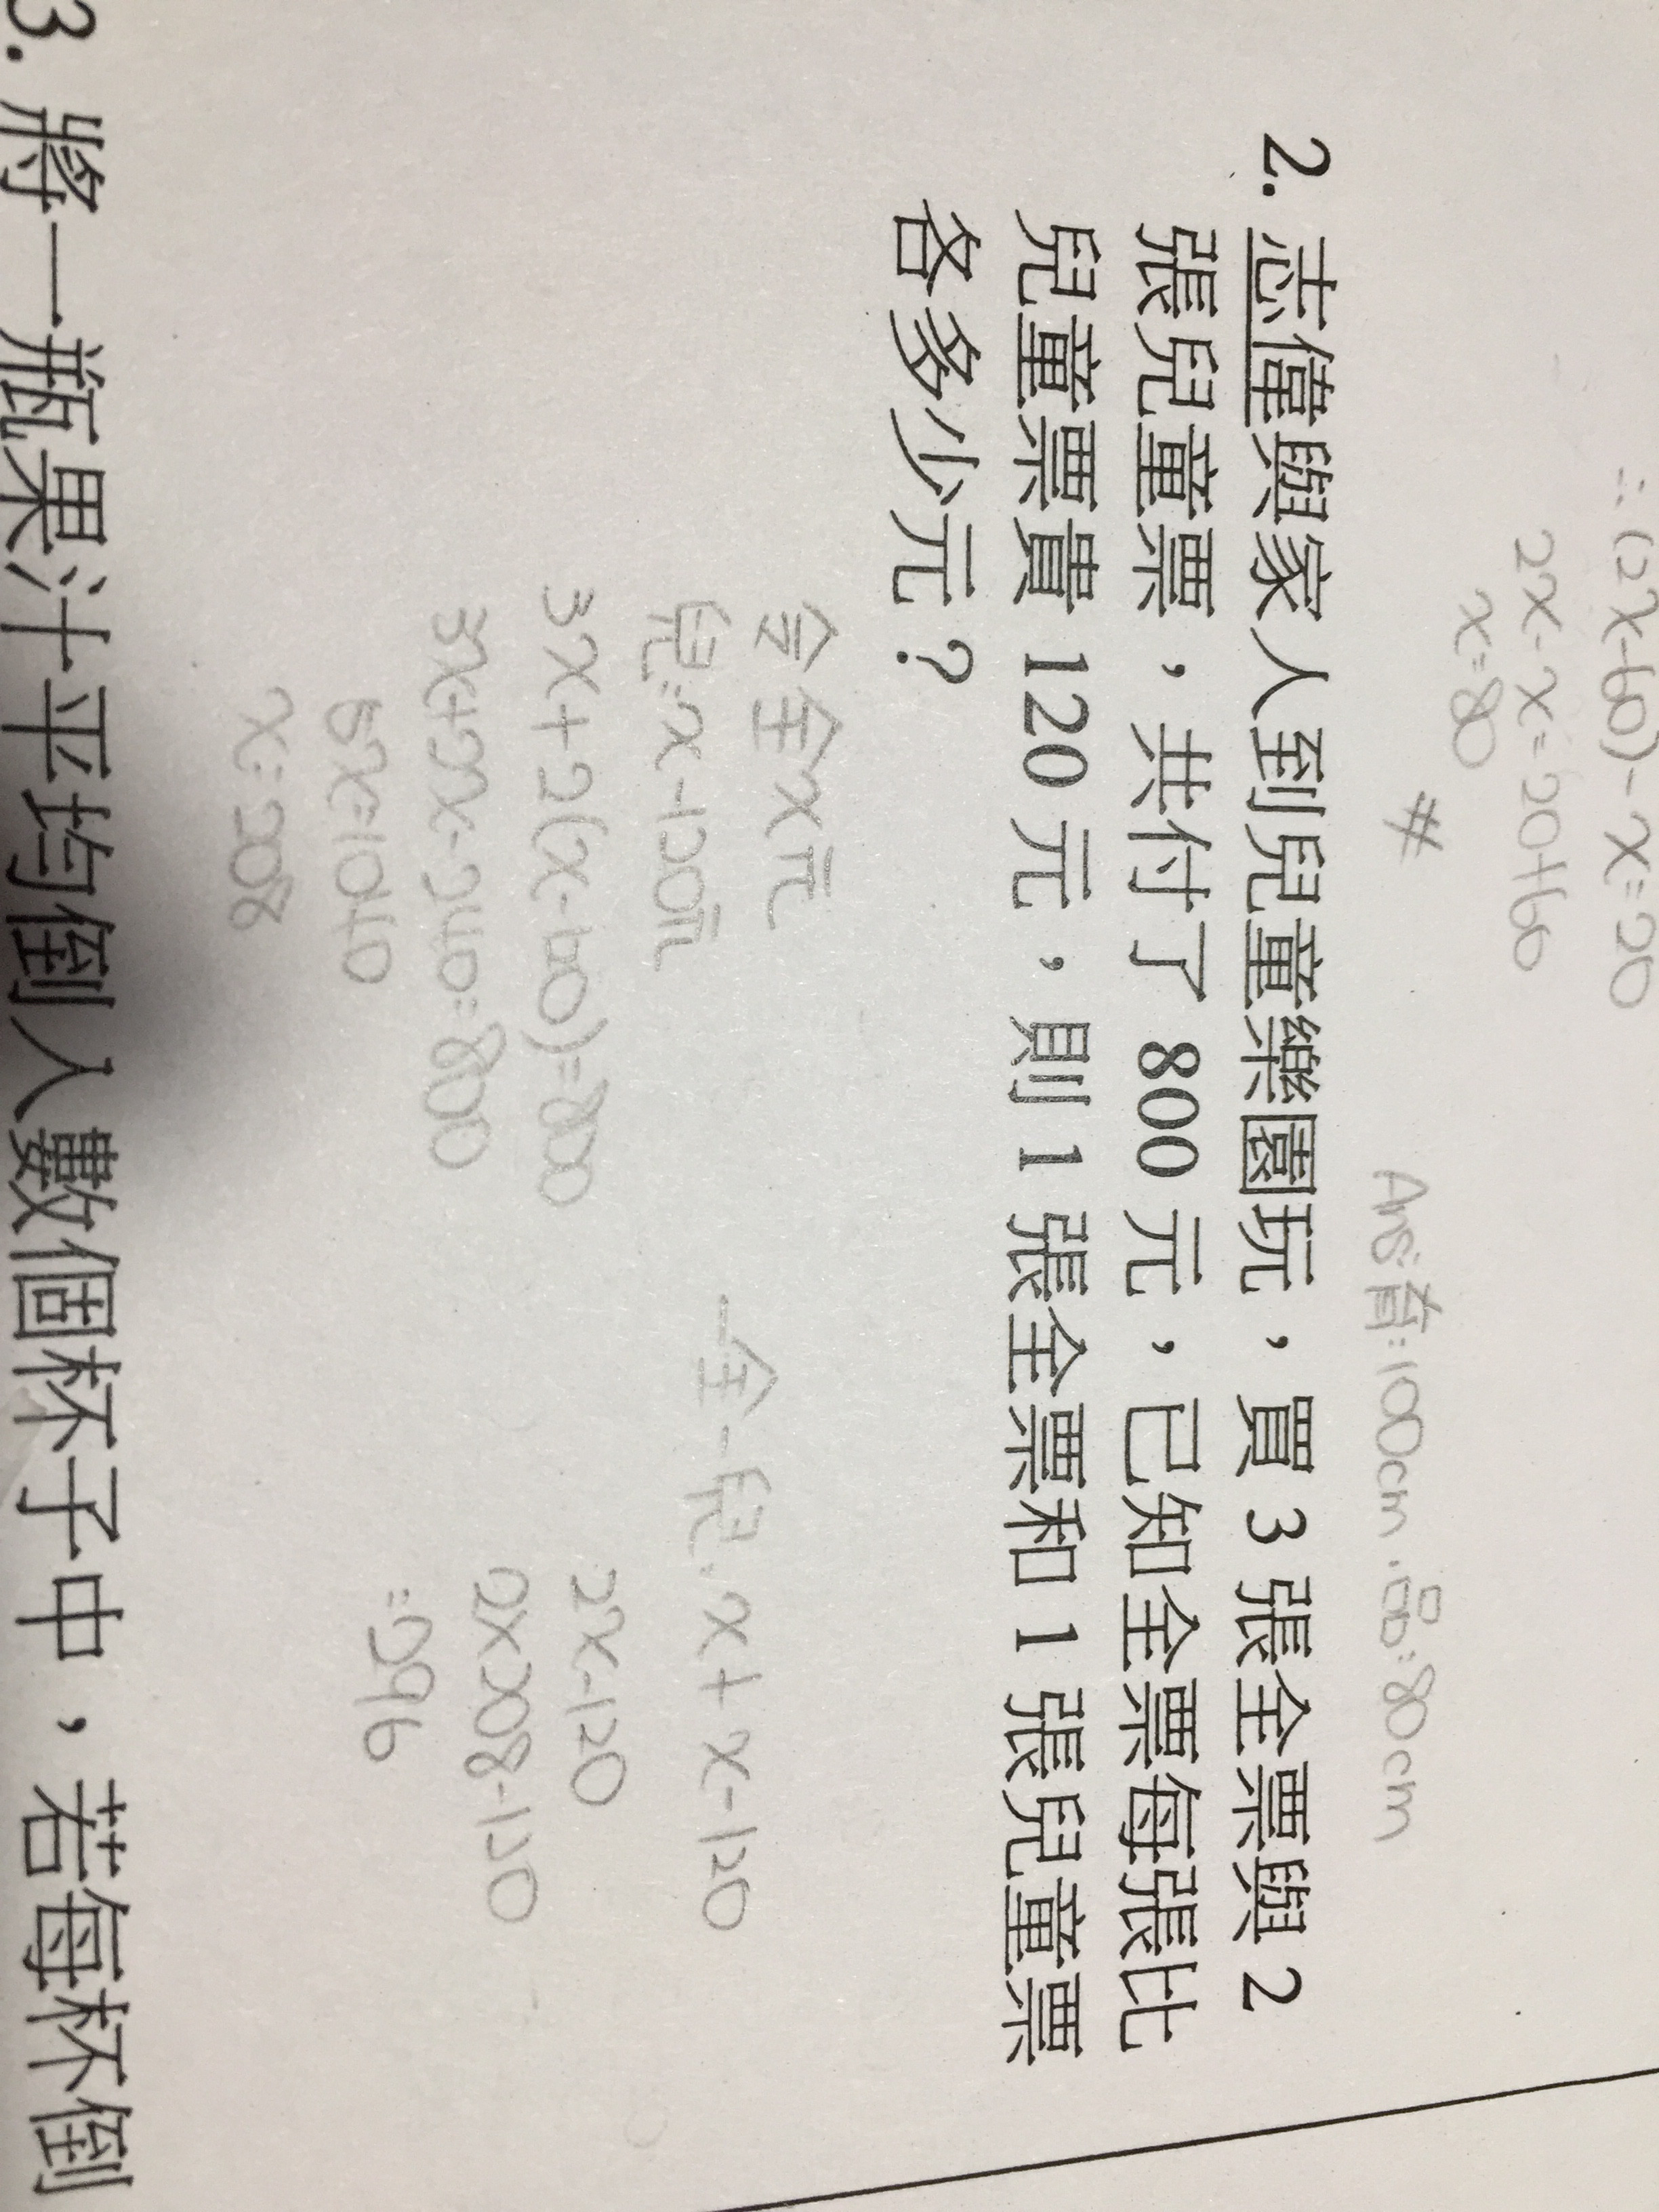 ∴(2x-60)-x=20
2x-x=20+60
x=80
#
Ans:首:100cm.品:80cm
2. 志偉與家人到兒童樂園玩，買 3 張全票與 2
張兒童票，共付了 800 元，已知全票每張比
兒童票貴 120 元，則 1 張全票和 1 張兒童票
各多少元？
令全x元
兒:x-120元
3x+2(x-120)=800
3x+2x-240=800
5x=1040
x=208
一全一兒:x+x-120
2x-120
2x208-120
=296
3. 將一瓶果汁平均倒入數個杯子中，若每杯倒